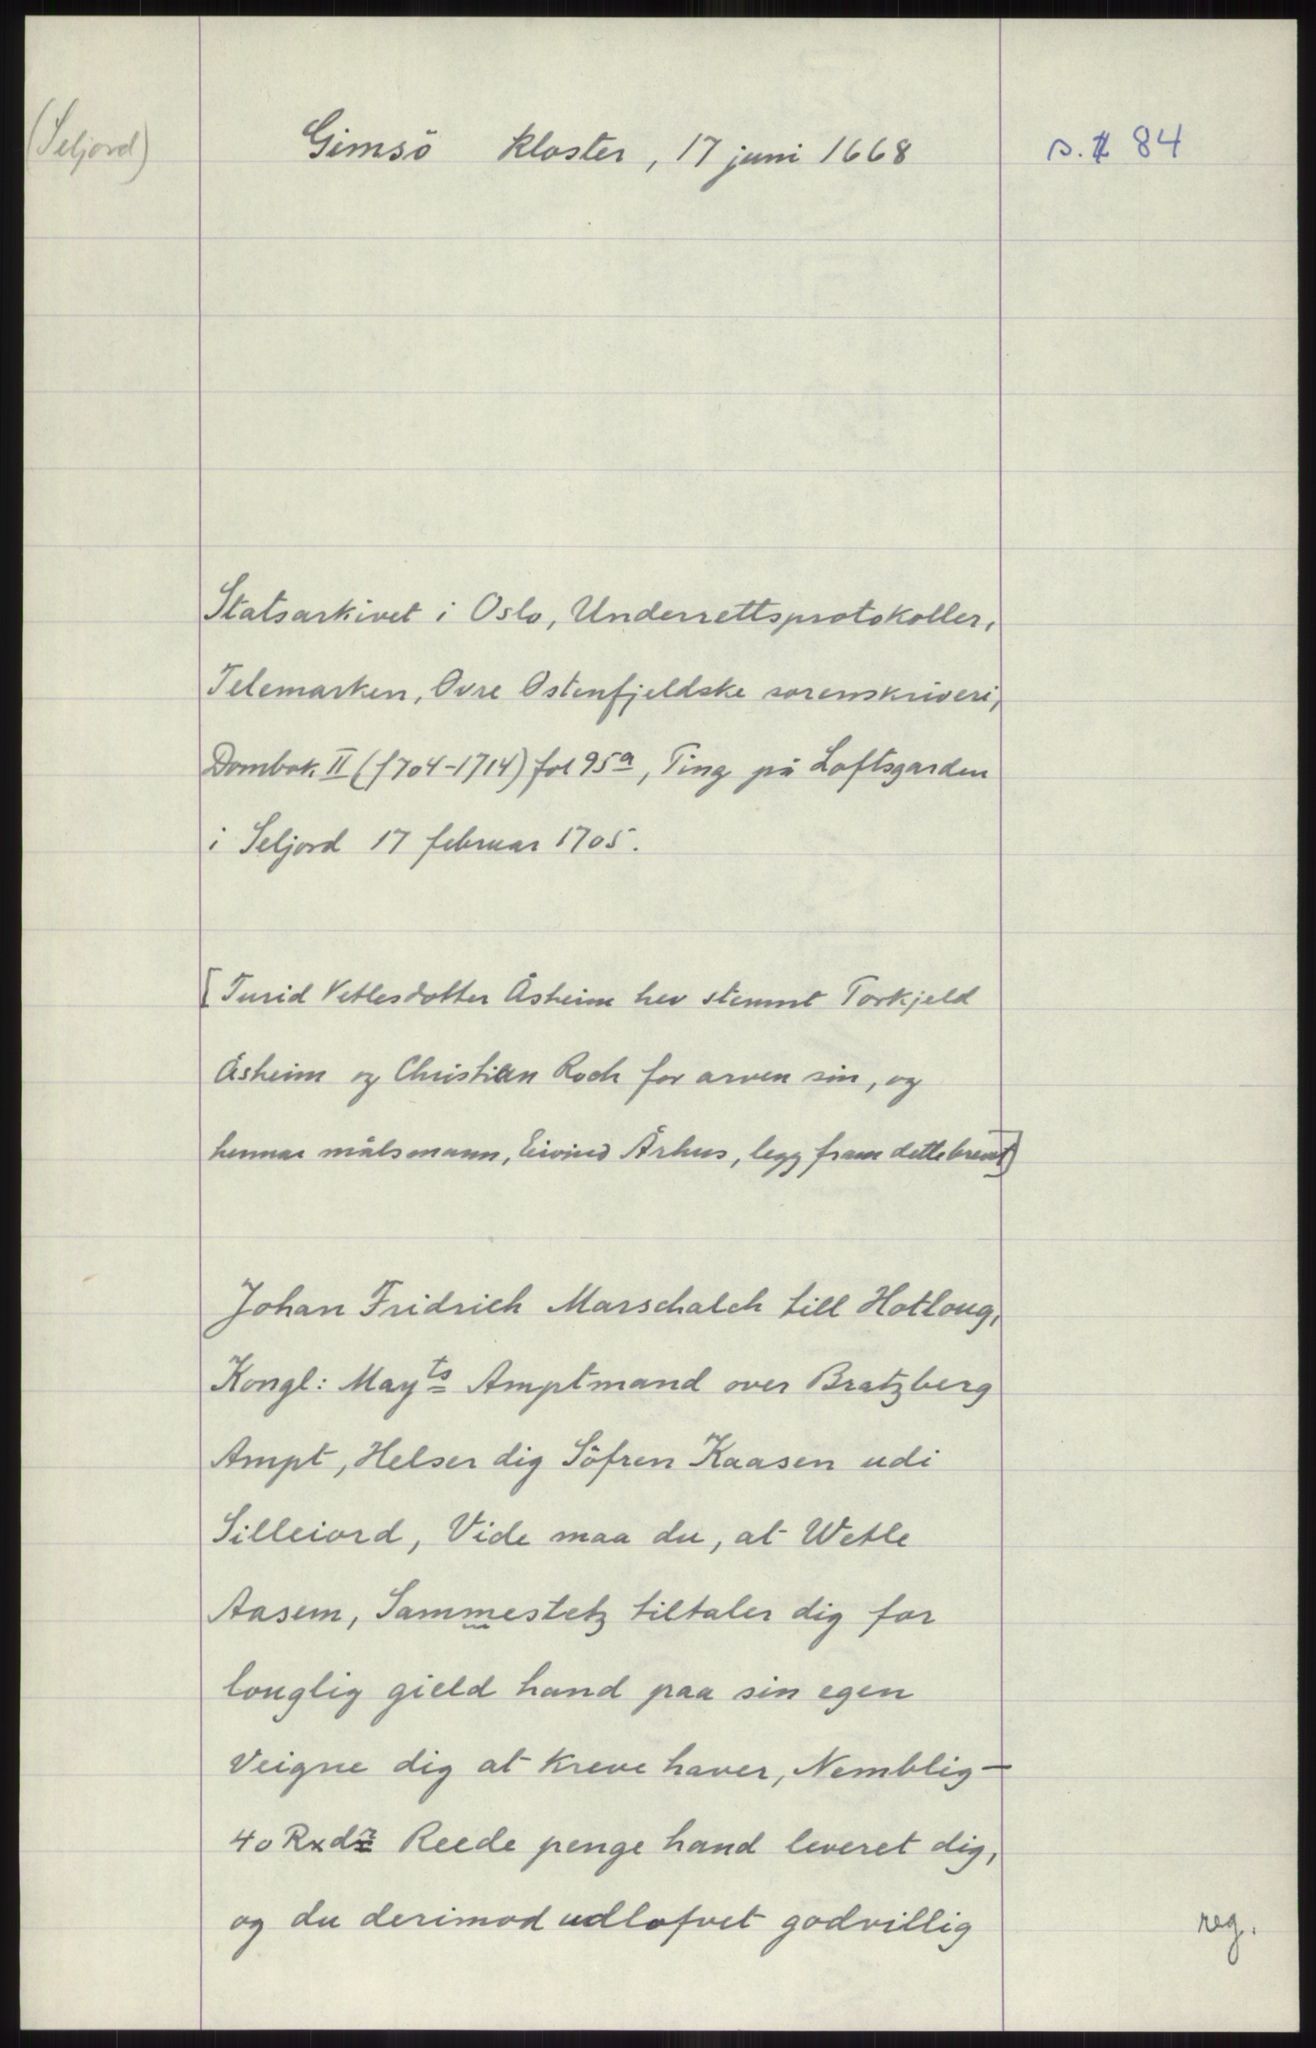 (Seljord)
Gimsö kloster, 17 juni 1668
s. 84
Statsarkivet i Oslo, Underrettsprotokoller,
Telemarken, Ovre Ostenfjeldske sorenskriveri,
Dombok II (1704-1714) fol 95a, Ting på Loftsgarden
i Seljord 17 februar 1705.
[Turid Vetlesdotter Åsheim hev stemnt Torkjeld
Åsheim og Christian Roch for arven sin, og
hennar målsmann, Eivind Århus, legg fram dette brevet]
Johan Fridrich Marschalch till Hotloug,
Kongl: Mayts Amptmand over Bratzberg
Ampt, Helser dig Söfren Kaasen udi
Silleiord, Vide maa du, at Wetle
Aasem, Sammestetz tiltaler dig for
louglig gield hand paa sin egen
Veigne dig at kreve haver, Nemblig-
40 Rxdr Reede penge hand leveret dig,
og du derimod udlofvet godvillig
reg.